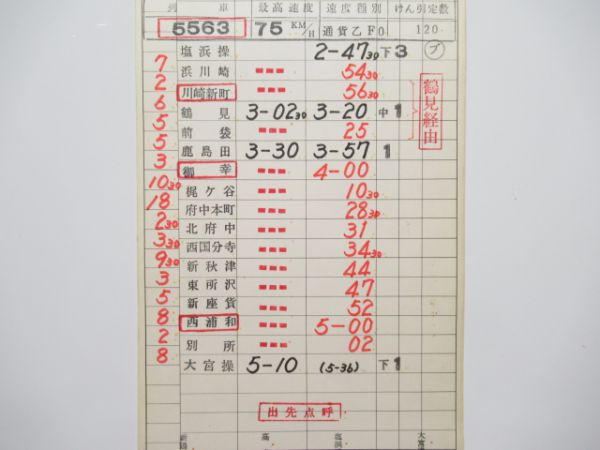 列 車 最高速度 速度種別 けん引定数
5563 75 KM/H 通貨乙F0 120
塩浜操 2-47 30 下3 ブ
7
浜川崎 54 30
2
川崎新町 56 30
6
鶴見 3-02 30 3-20 中1
5
前袋 25
5
鹿島田 3-30 3-57 1
3
御幸 4-00
10 30
梶ケ谷 10 30
18
府中本町 28 30
2 30
北府中 31
3 30
西国分寺 34 30
9 30
新秋津 44
3
東所沢 47
5
新座貨 52
8
西浦和 5-00
2
別所 02
8
大宮操 5-10 (5-36) 下1
鶴見経由
出先点呼